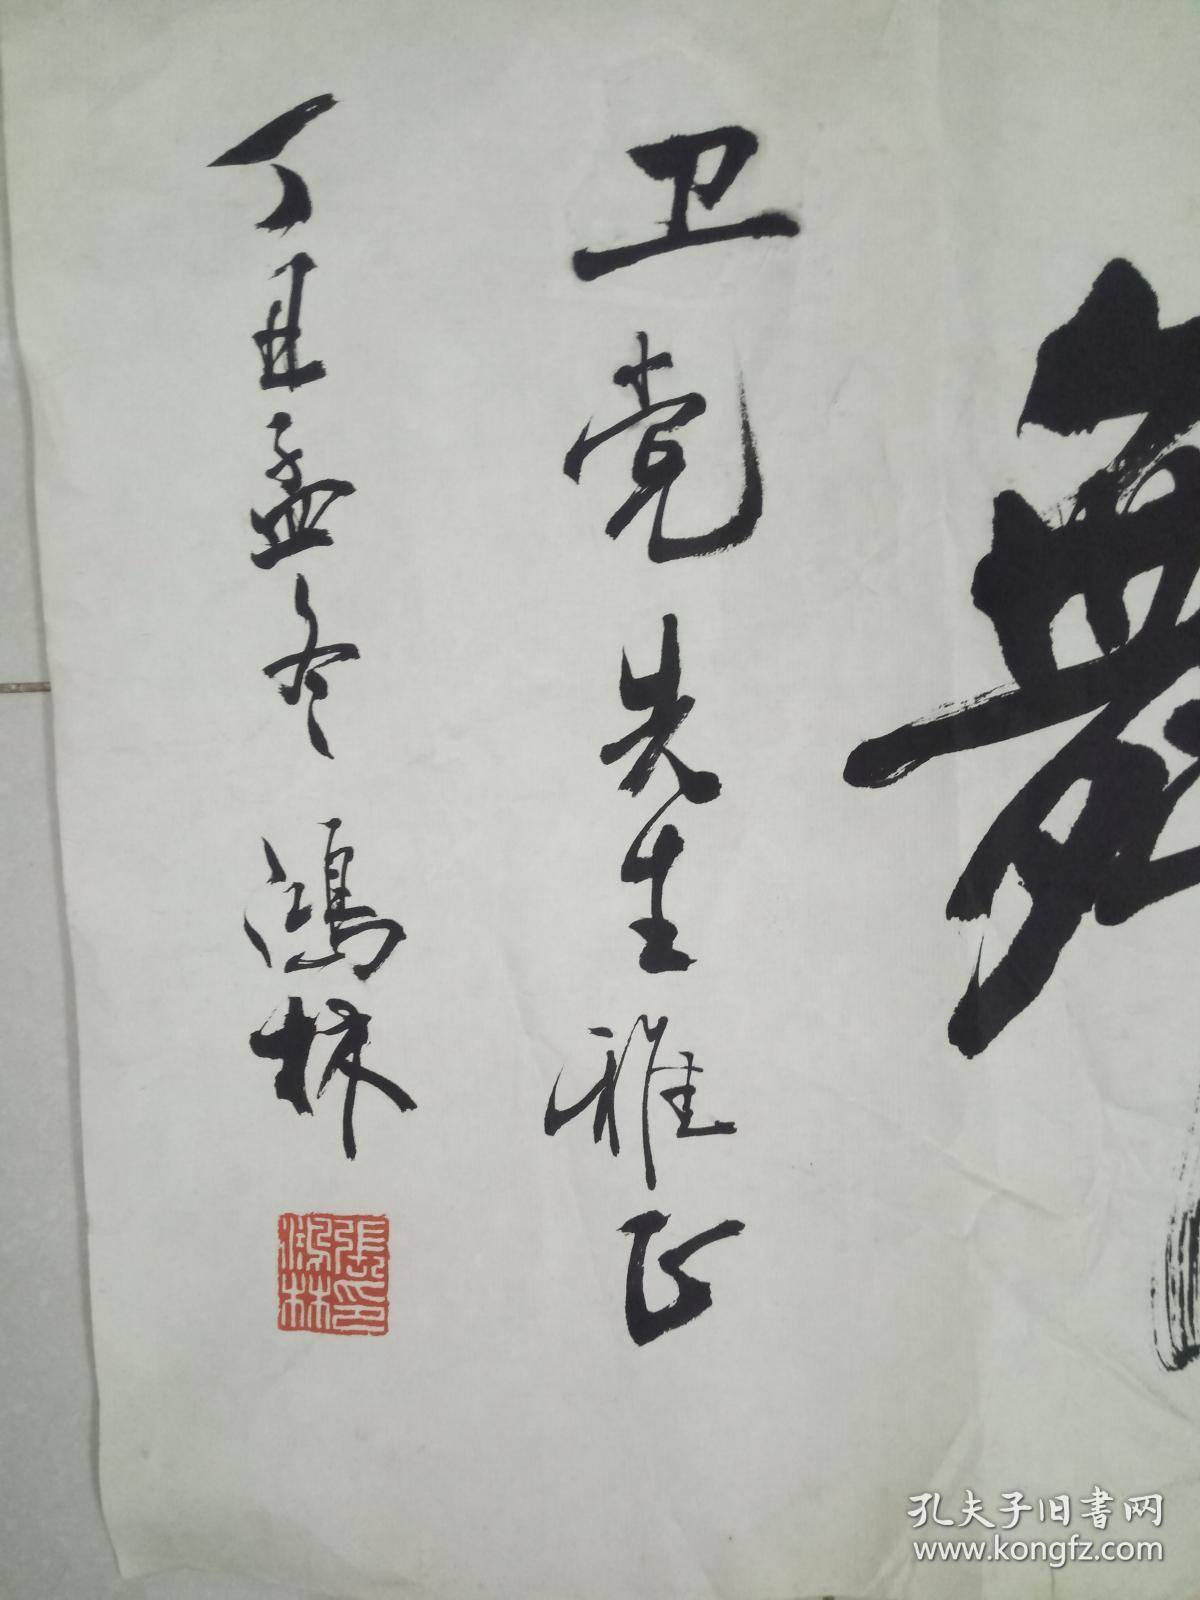 舞
卫党先生雅正
丁丑孟冬 鸿林
張鴻林印
孔夫子旧书网
www.kongfz.com